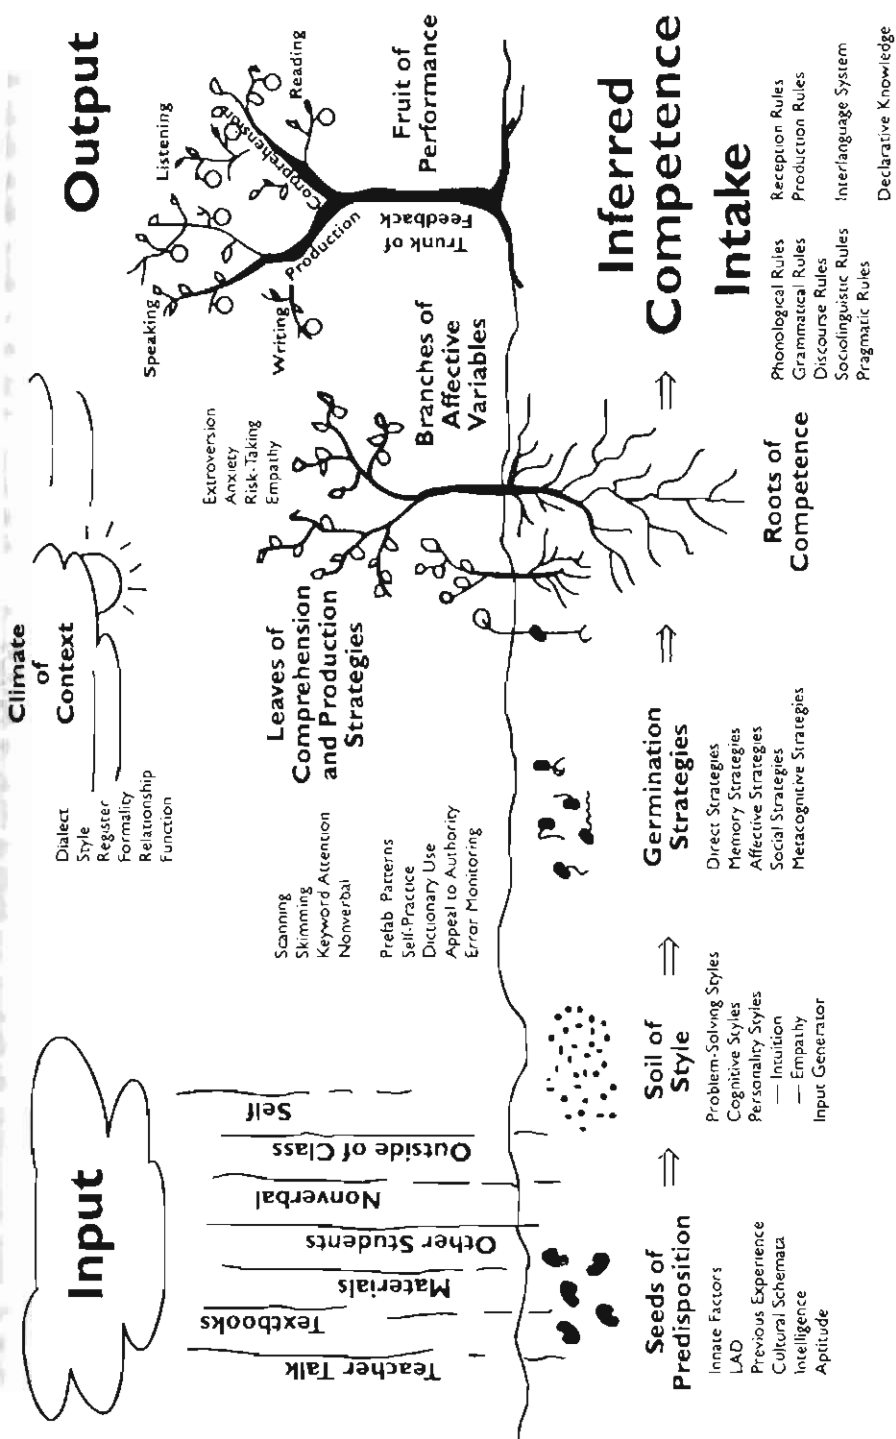 Input
Teacher Talk
Textbooks
Materials
Other Students
Nonverbal
Outside of Class
Self
Climate
of
Context
Dialect
Style
Register
Formality
Relationship
Function
Output
Speaking
Listening
Reading
Writing
Production
Comprehension
Fruit of
Performance
Trunk of
Feedback
Extroversion
Anxiety
Risk-Taking
Empathy
Branches of
Affective
Variables
Leaves of
Comprehension
and Production
Strategies
Scanning
Skimming
Keyword Attention
Nonverbal
Prefab Patterns
Self-Practice
Dictionary Use
Appeal to Authority
Error Monitoring
Seeds of
Predisposition
Innate Factors
LAD
Previous Experience
Cultural Schemata
Intelligence
Aptitude
⇒
Soil of
Style
Problem-Solving Styles
Cognitive Styles
Personality Styles
— Intuition
— Empathy
Input Generator
⇒
Germination
Strategies
Direct Strategies
Memory Strategies
Affective Strategies
Social Strategies
Metacognitive Strategies
⇒
Roots of
Competence
⇒
Inferred
Competence
Intake
Phonological Rules
Grammatical Rules
Discourse Rules
Sociolinguistic Rules
Pragmatic Rules
Reception Rules
Production Rules
Interlanguage System
Declarative Knowledge